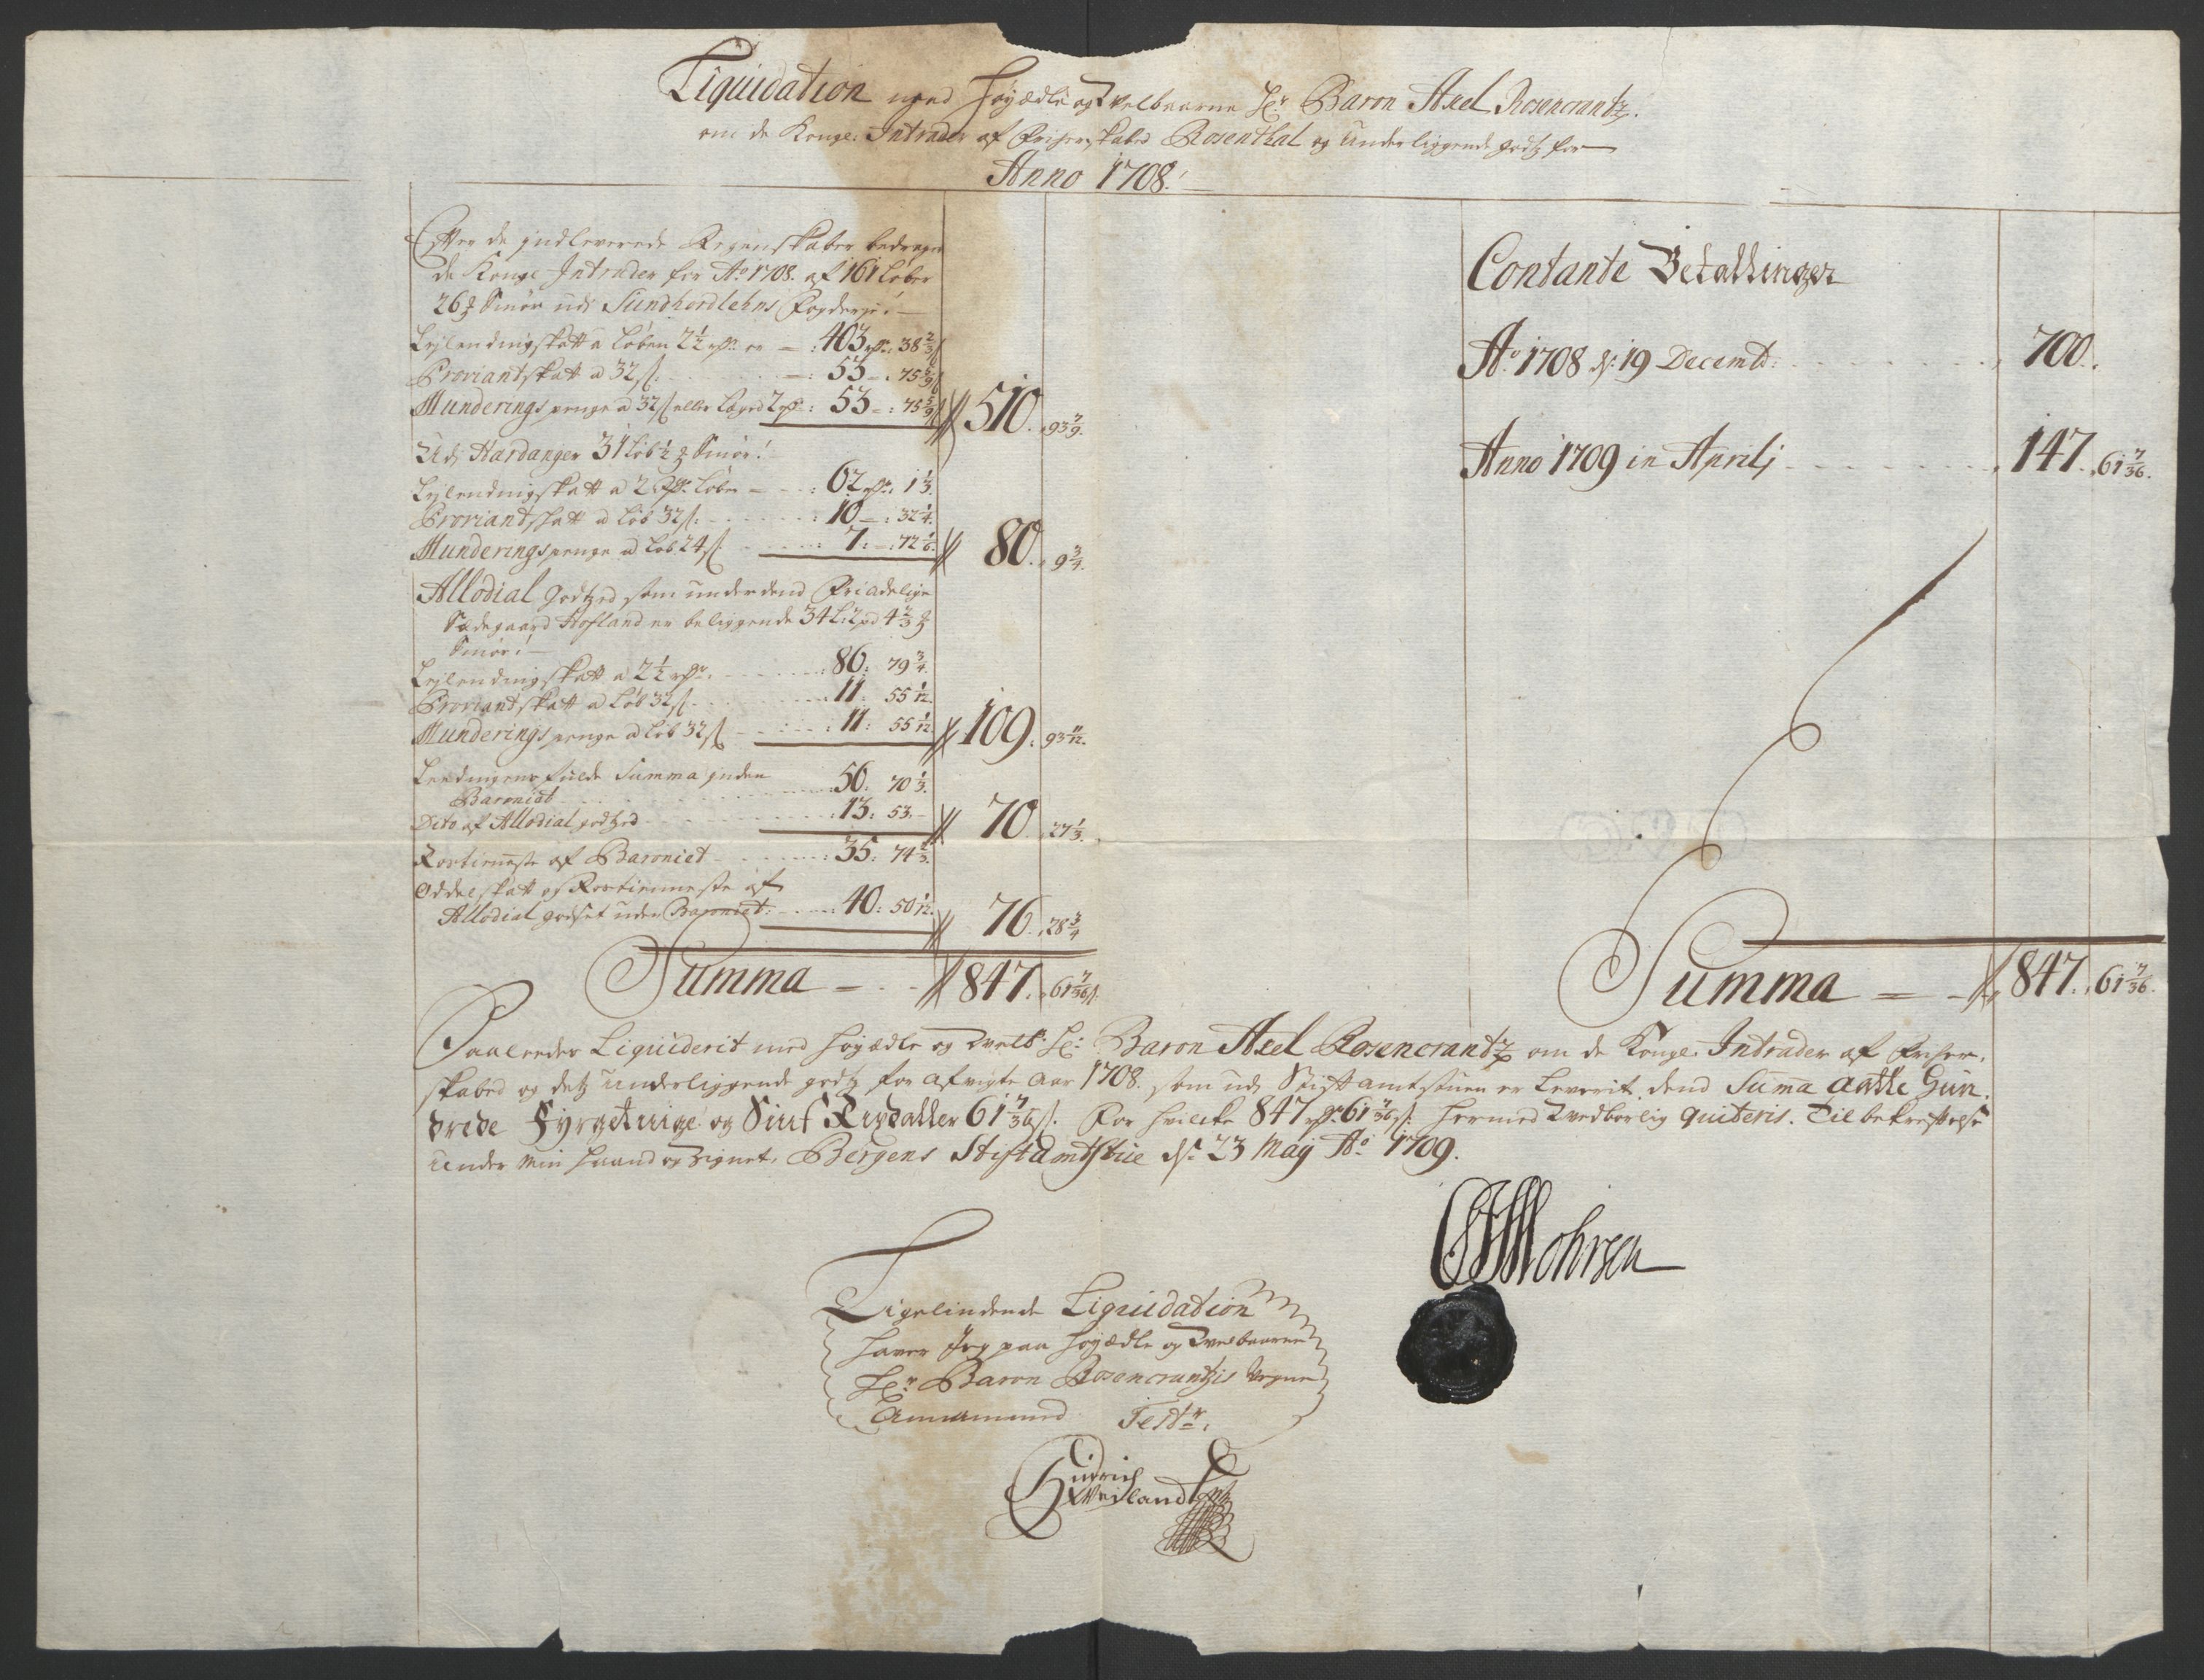 Liquidation med Höyædle og Velbaarne Hr. Baron Axel Rosencrantz.
om de Kongl: Intrader af Friherskabed Rosenthal og underliggende godtz for
Anno 1708.
Efter de indleverede Regenskaber bedrager
de Kongl Intrader for Ao 1708. af 161 Löber
26 ℔ Smör udi Sundhordlehns Fogderje:
Lejlendingskatt a Löben 2½ rdr. er - : 403 rdr: 38 2/3 s
Proviantskatt a 32 s. - : 53 - : 75 5/9 s
Munderings penge a 32 s eller Lægd 2 rdr : 53 - : 75 5/9 s 510. 93 7/9.
Udj Hardanger 31 Löb ½ ℔ Smör!
Lejlendingskatt a 2 Rdr. Löben - : 62 rdr: 1 1/3.
Proviantskatt a Löb 32 s: : 10 - : 32 1/4.
Munderingspenge a Löb 24 s : 7: - : 72 1/6. 80. 9 3/4.
Allodial godtzed som under dend Friadelige
Sædegaard Hofland er beliggende 34 L: 2 pd 4 2/3 ℔
Smör:
Lejlendingskatt a 2½ rdr. : 86: 79 3/4.
Proviantskatt a Löb 32 s. : 11: 55 1/12.
Munderings penge a Löb 32 s : 11: 55 1/12 109. 93 11/12.
Leedingens fulde Summa inden
Baroniet : 56: 70 1/3.
Dito af Allodial godtzed : 13: 53. 70. 27 1/3.
Rostienneste af Baroniet : 35: 74 2/3.
Oddelskatt og Rostienneste af
Allodial godset uden Baroniet: : 40: 50 1/12. 76. 28 3/4
Summa - 847. 61 7/36 s.
Contante Betallinger
Ao 1708 d: 19 Decemb: 700.
Anno 1709 in Aprilj 147. 61 7/36.
Summa - 847. 61 7/36.
Saaleedes Liquiderit med Höyædle og Velb: Hr: Baron Axel Rosencrantz om de Kongl: Intrader af Friher-
skabed og detz underliggende godtz for afvigte Aar 1708. som udj Stiftamtstuen er Leverit dend Suma Aatte Hun-
drede Fyrgetuige og Siuf Rixdaller 61 7/36 s. For hvilcke 847 rdr: 61 7/36 s. hermed Vedborlig quiteris. Til bekreftelse
under min haand og Zignet. Bergens Stiftamtstue d: 23 Maij Ao 1709.
Ligelindende Liquidation
haver Jeg paa höyædle og Velbaarne
Hr: Baron Rosencrantzis Vegne
Annammed Testr.
Hidrich
Weiland